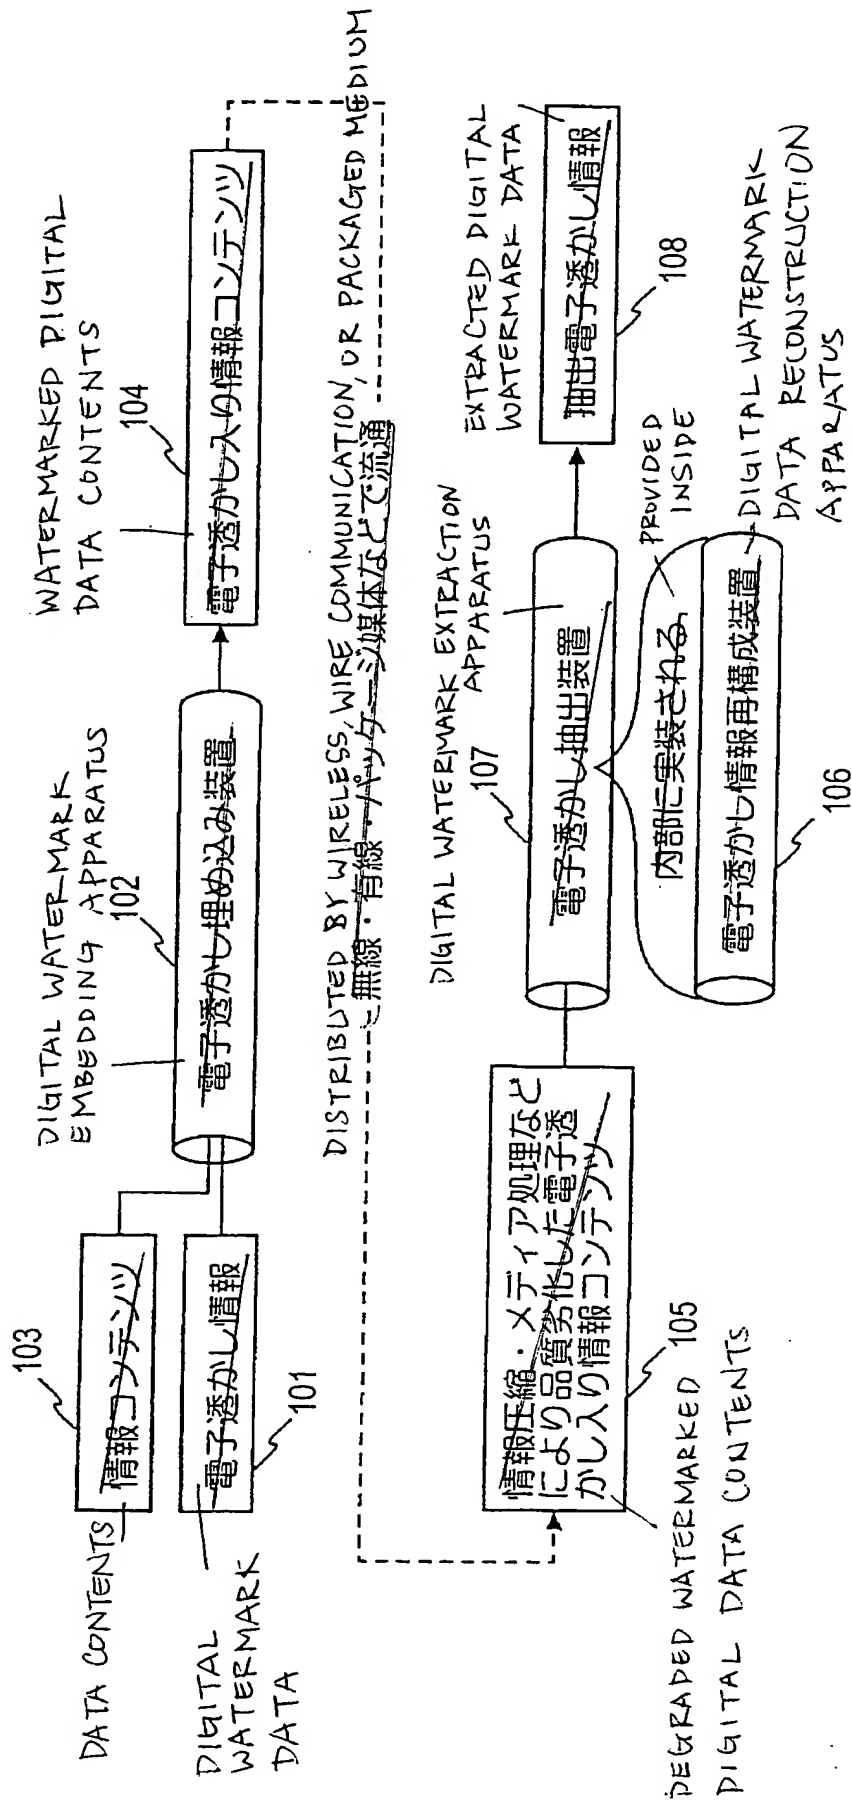 103
DATA CONTENTS
情報コンテンツ
電子透かし情報
101
DIGITAL
WATERMARK
DATA
DIGITAL WATERMARK
EMBEDDING APPARATUS
102
電子透かし埋め込み装置
WATERMARKED DIGITAL
DATA CONTENTS
104
電子透かし入り情報コンテンツ
DISTRIBUTED BY WIRELESS, WIRE COMMUNICATION, OR PACKAGED MEDIUM
無線・有線・パッケージ媒体などで流通
情報圧縮・メディア処理など
により品質劣化した電子透
かし入り情報コンテンツ
105
DEGRADED WATERMARKED
DIGITAL DATA CONTENTS
DIGITAL WATERMARK EXTRACTION
APPARATUS
107
電子透かし抽出装置
PROVIDED
INSIDE
内部に実装される
電子透かし情報再構成装置
106
DIGITAL WATERMARK
DATA RECONSTRUCTION
APPARATUS
EXTRACTED DIGITAL
WATERMARK DATA
抽出電子透かし情報
108